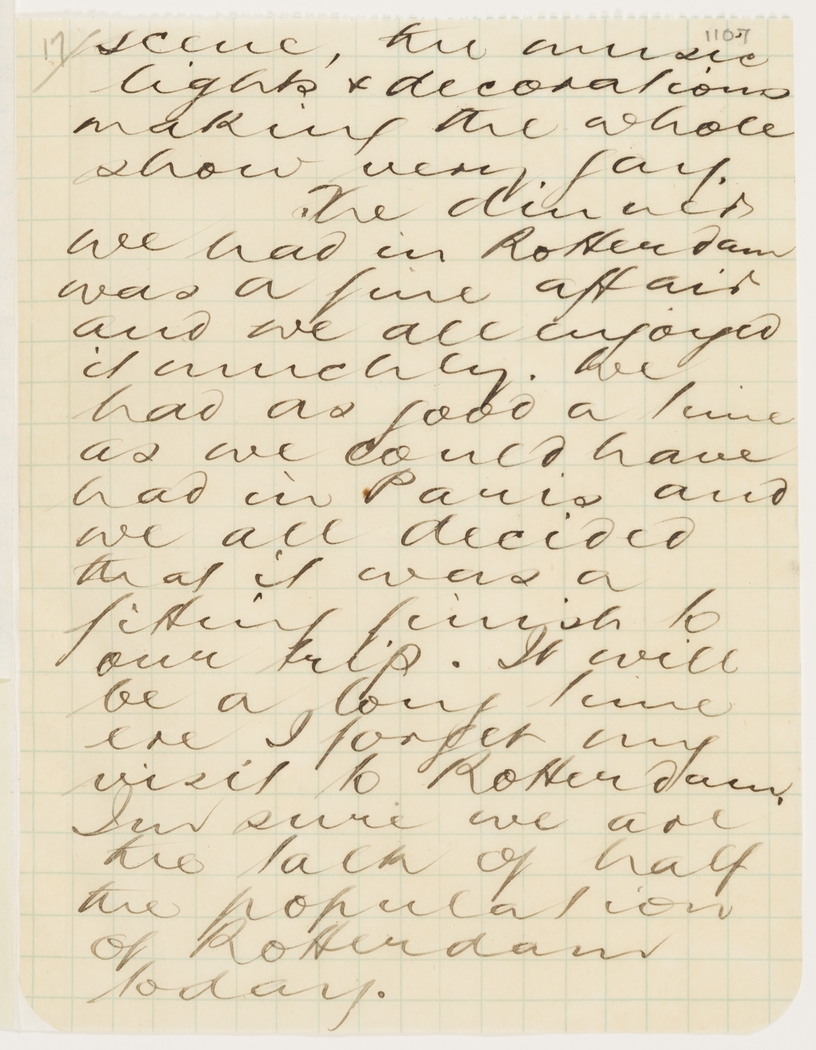 17/ 1107
scene, the music
lights & decorations
making the whole
show very gay.
The dinner
we had in Rotterdam
was a fine affair
and we all enjoyed
it muchly. We
had as good a time
as we could have
had in Paris and
we all decided
that it was a
fitting finish to
our trip. It will
be a long time
ere I forget my
visit to Rotterdam.
Im sure we are
the talk of half
the population
of Rotterdam
today.